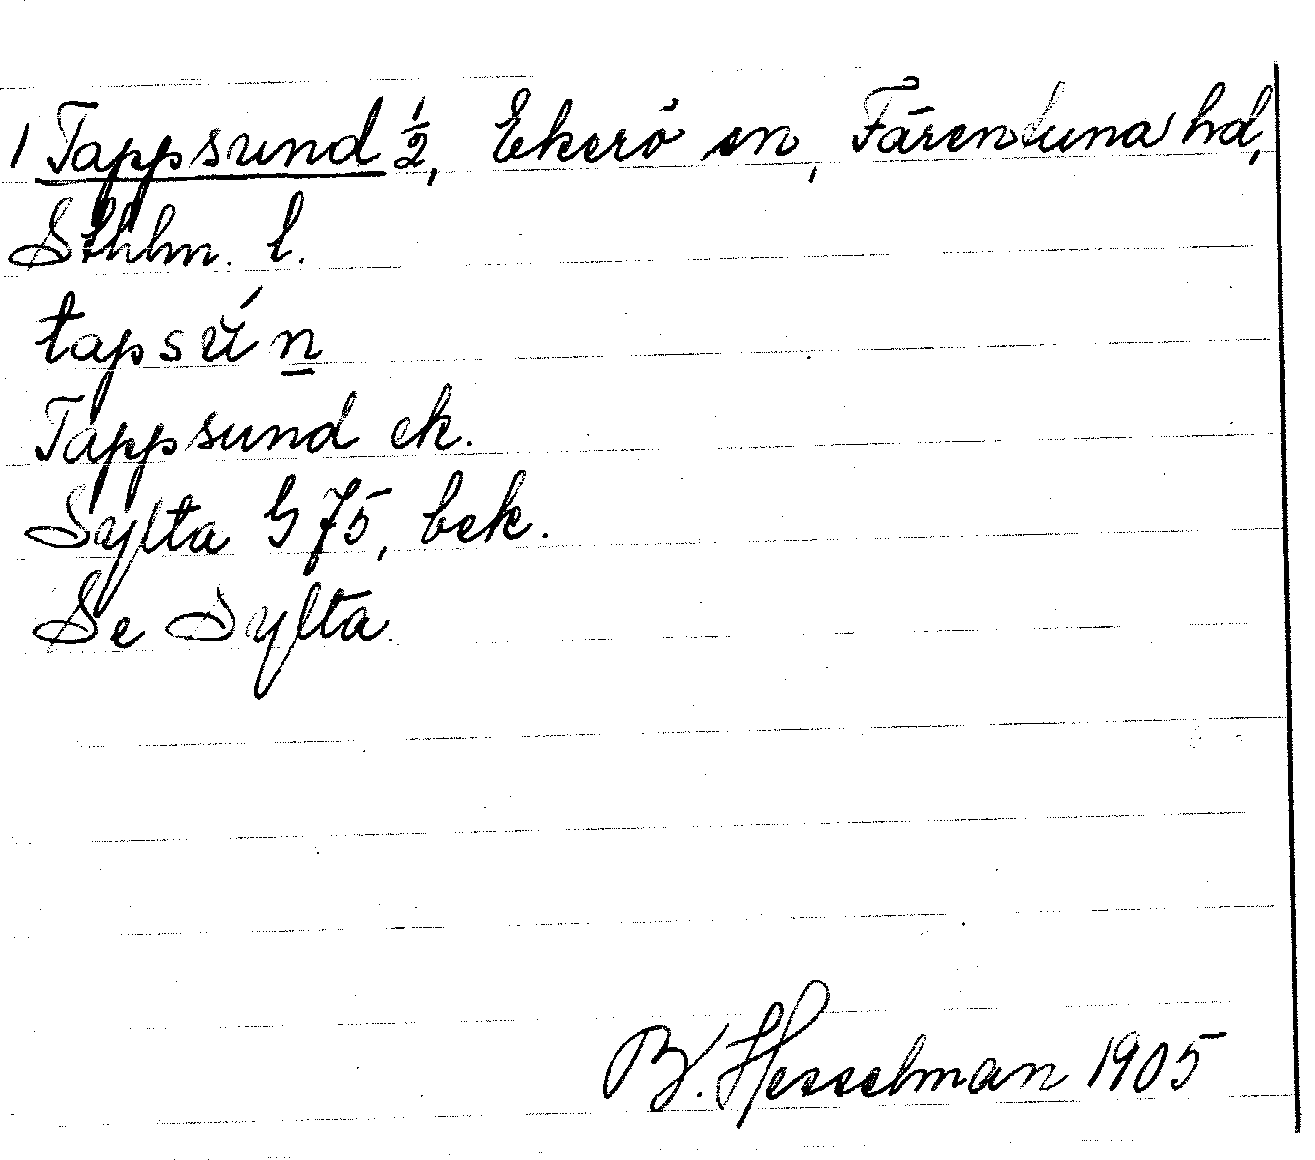 1 Tappsund ½, Ekerö sn, Färentuna hd,
Sthlm. l.
tapsún
Tappsund ek.
Sylta G 75, bek.
Se Sylta.
B. Hesselman 1905